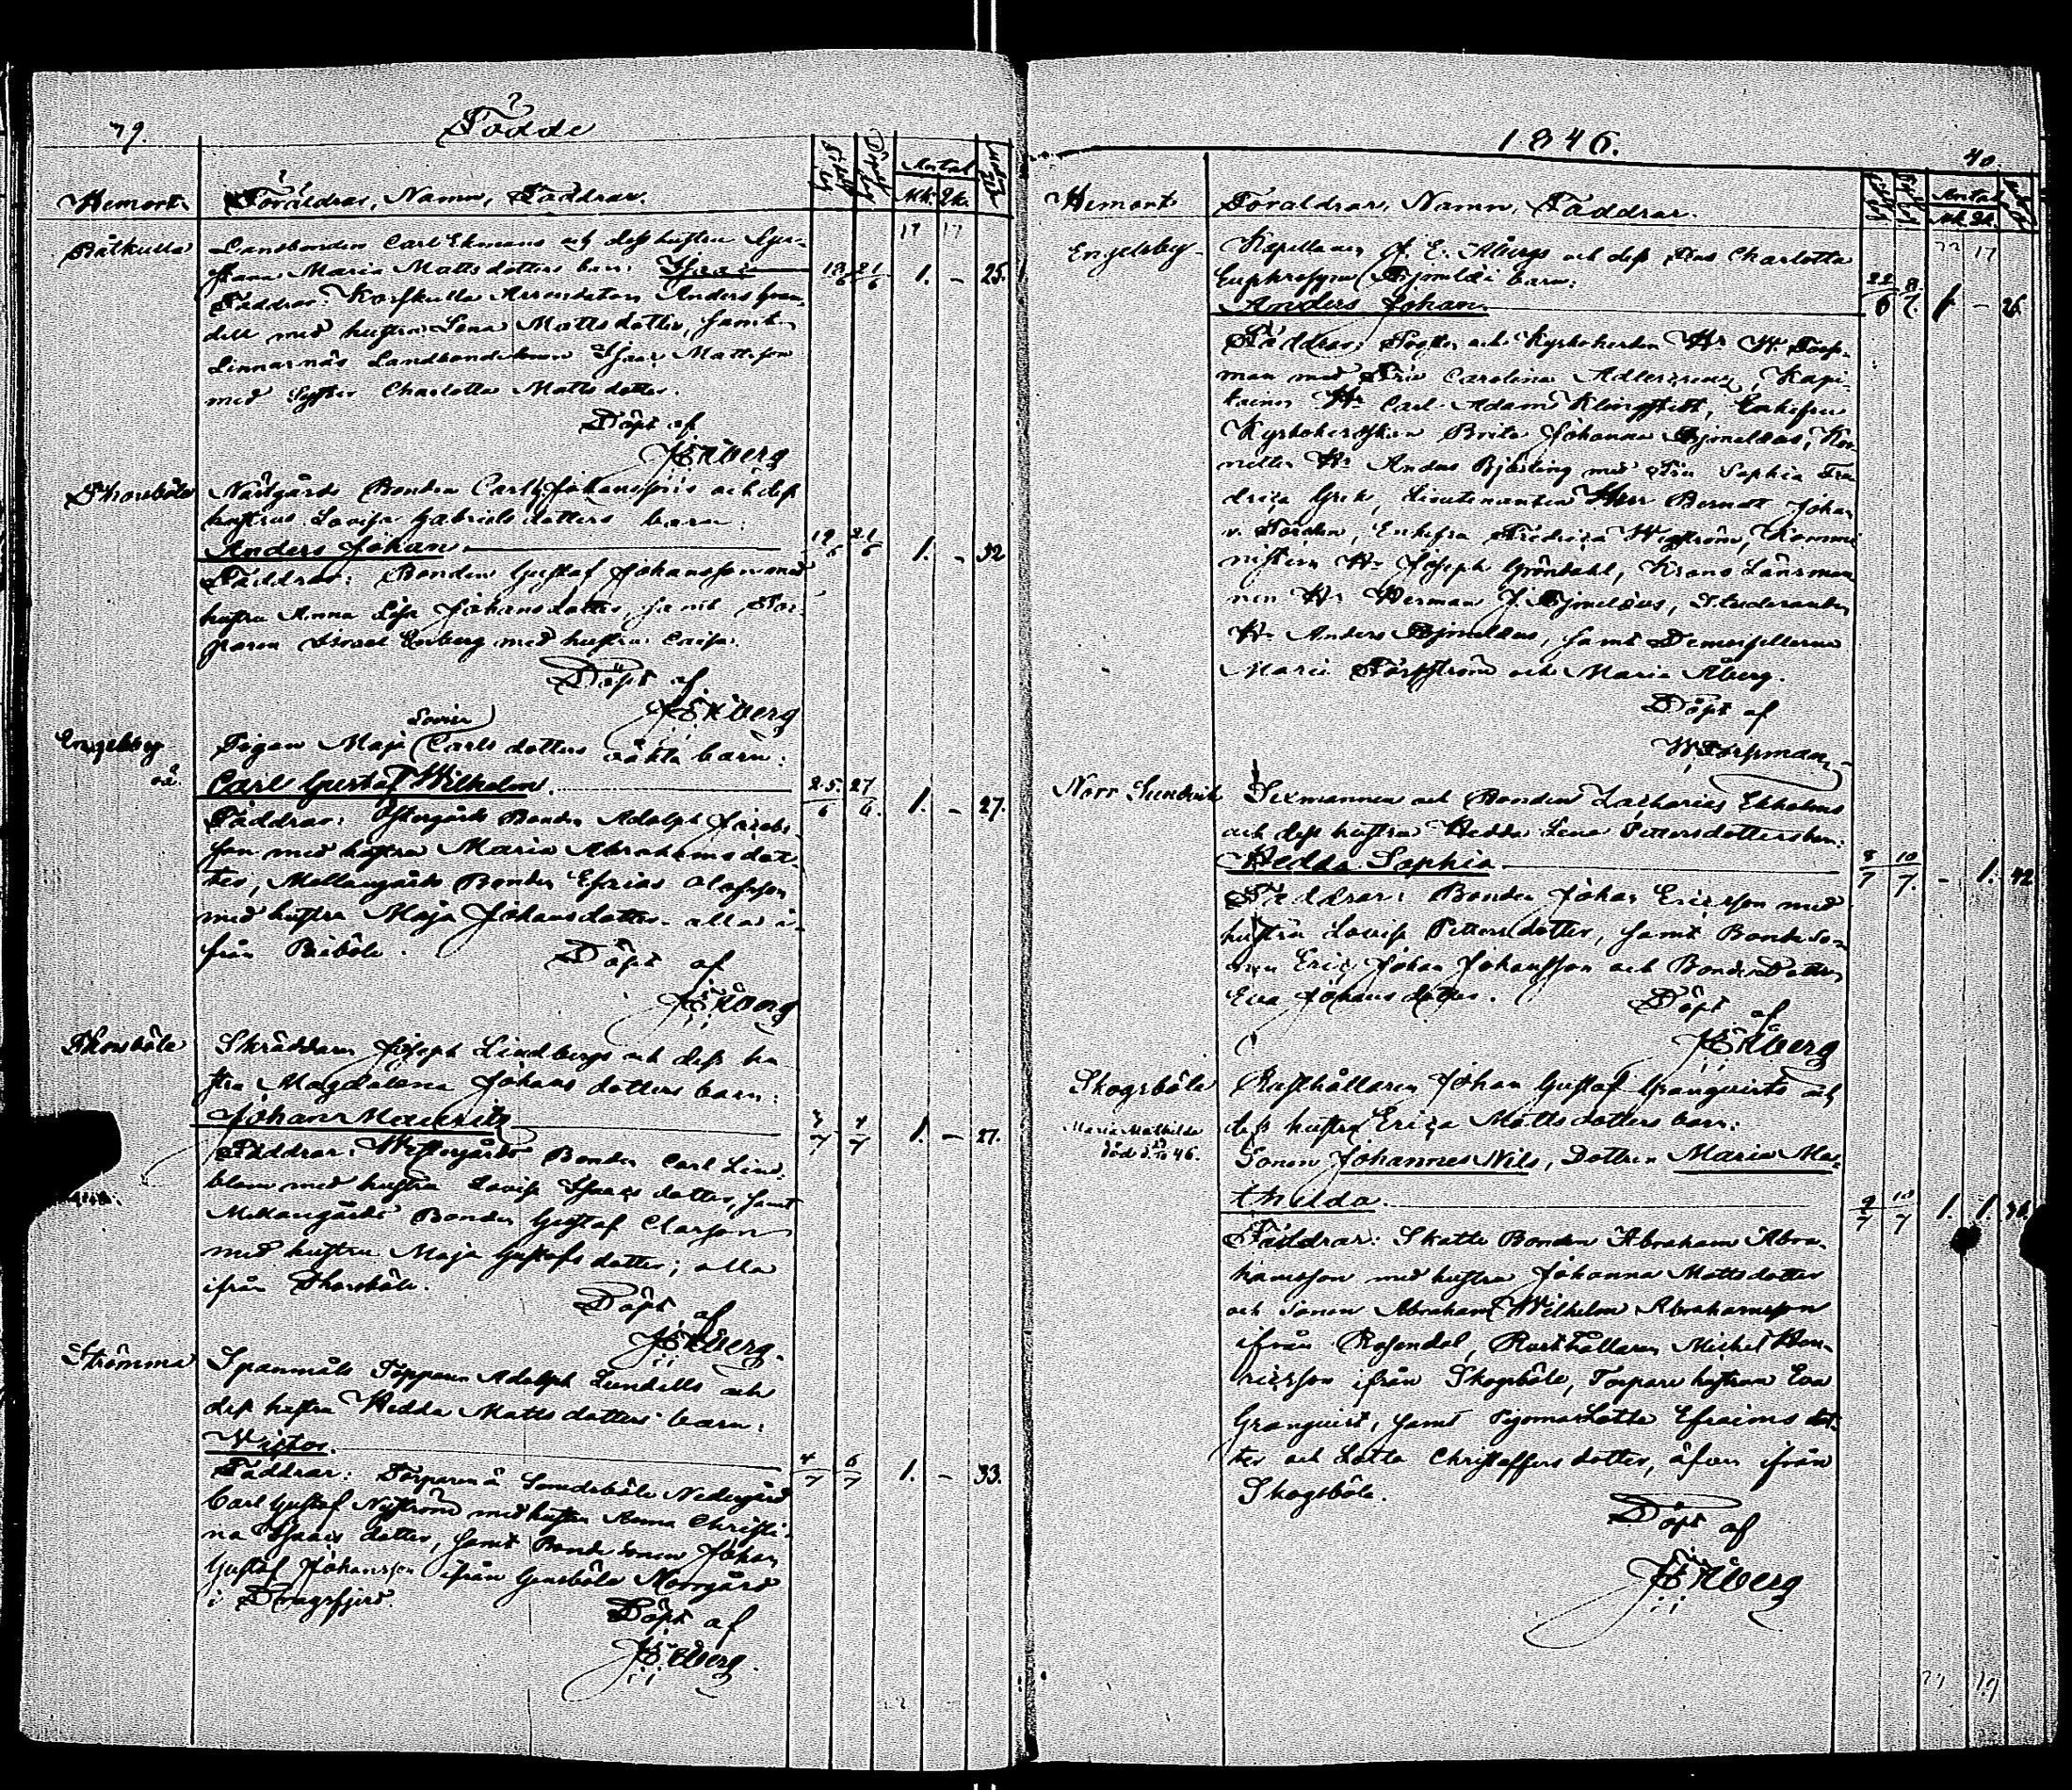 79. Födde
Hemort. Föräldrar, Namn, Faddrar. Antal
Mk. Qk.
Båtkulla Landbonden Carl Ekmans och dess hustru
Maria Matts dotters barn: Isaac 18/6 21/6 1. – 25.
Faddrar: Arrendatorn Anders
dell med hustru Lena Matts dotter, samt
Linnarnäs Landbondesonen Isaac Mattsson
med Syster Charlotta Matts dotter.
Döpt af
JEÅberg
Norrgårds Bonden Carl Johanssons och dess
hustrus Lovisa Gabriels dotters barn:
Anders Johan 19/6 21/6 1. – 32
Faddrar: Bonden Gustaf Johansson med
hustru Anna Lisa Johans dotter, samt Tor-
paren Israel Enberg med hustru Caisa.
Döpt af
JEÅberg
Lovisa
Engelsby Pigan Maja Carls dotters oäkta barn:
oä. Carl Gustaf Wilhelm. 25./6 27/6. 1. – 27.
Faddrar: Östergårds Bonden Adolph Jacobs-
son med hustru Maria Abrahams dot-
ter, Mellangårds Bonden Olofsson
med hustru Maja Johans dotter – alla i-
från
Döpt af
JEÅberg
Thorsböle Skräddaren Joseph Lindbergs och dess hu
stru Magdalena Johans dotters barn:
Johan Mauritz 3/7 4/7 1. – 27.
Faddrar: Westergårds Bonden Carl Lind-
blom med hustru Lovisa Isaacs dotter, samt
Mellangårds Bonden Gustaf Classon
med hustru Maja Gustafs dotter; alla
ifrån Thorsböle.
Döpt af
JEÅberg.
Strömma Spanmåls Adolph Lundells och
dess hustru Hedda Matts dotters barn:
Victor. 4/7 5/7 1. – 33.
Faddrar: Torparen å Nedergård
Carl Gustaf Nyström med hustru Anna Christi-
na Isaacs dotter, samt Bonde sonen Johan
Gustaf Johansson ifrån Genböle Norrgård
i Dragsfjerd.
Döpt af
JEÅberg.
1846. 40.
Hemort Föräldrar, Namn, Faddrar. Antal
Mk. Qk.
Engelsby Kapellanen J. E. Åbergs och dess Fru Charlotta
Euphrosyne barn:
Anders Johan. 22/6 8/7. 1 – 26
Faddrar: Kyrkoherden Hr W. Forss-
man med Fru Carolina Adlercreutz, Kapi-
tainen Hr Carl Adam Klingstedt, Enkefru
Kyrkoherdskan Brita Johanna
Hr Anders Björling med Fru Sophia Fre
drica Lieutenanten Herr Bernat Johan
v. Enkefru Fredrica Wegström, Kommi
nistern Hr Joseph Gröndahl, Krono Länsman
nen Hr Herman J. Studeranden
Hr Anders samt Demoisellerna
Maria och Maria Åberg.
Döpt af
W. Forssman
Norr Sundvik Sexmannen och Bonden Zacharias Ekholms
och dess hustru Hedda Lena Pettersdotters barn:
Hedda Sophia 8/7 10/7. – 1. 42
Faddrar: Bonden Johan Ericsson med
hustru Lovisa Petters dotter, samt Bondeso-
nen Eric Johan Johansson och BondeDottren
Eva Johans dotter.
Döpt af
JEÅberg
Skogsböle Rusthållaren Johan Gustaf Granqvists och
Maria Mathilda dess hustru Erica Matts dotters barn:
död 46. Sonen Johannes Nils, Dottren Maria Ma-
thilda. 9/7 10/7 1. 1.
Faddrar: Skatte Bonden Abraham Abra-
hamsson med hustru Johanna Matts dotter
och Sonen Abraham Wilhelm Abrahamsson
ifrån Rosendal, Rusthållaren Michel Hen-
ricsson ifrån Skogsböle, Torpare hustrun Eva
Granqvist, samt Pigorna Lotta Efraims dot-
ter och Lotta Christoffers dotter, äfven ifrån
Skogsböle.
Döpt af
JEÅberg